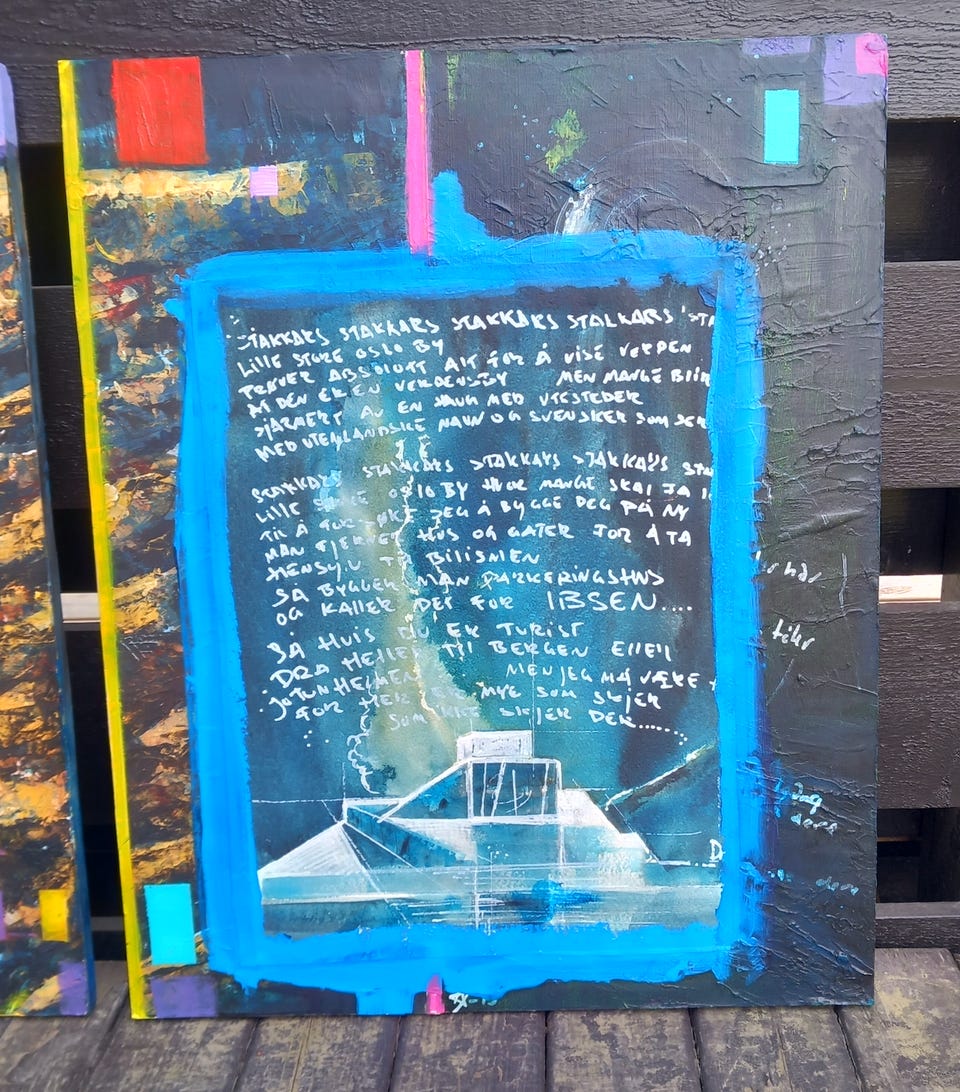 STAKKARS STAKKARS STAKKARS STAKKARS STA
LILLE STORE OSLO BY
PRØVER ABSOLUTT ALT FOR Å VISE VERDEN
AT DEN ER EN VERDENSBY MEN MANGE BLIR
SJARMERT AV EN HAUG MED UTESTEDER
MED UTENLANDSKE NAVN OG SVENSKER SOM SER
STAKKARS STAKKARS STAKKARS STAKKARS STA
LILLE STORE OSLO BY HVOR MANGE SKAL JA
TIL Å FORSØKE SEG Å BYGGE DEG PÅ NY
MAN FJERNET HUS OG GATER FOR Å TA
HENSYN TIL BILISMEN
SÅ BYGGER MAN PARKERINGSHUS
OG KALLER DET FOR IBSEN....
SÅ HVIS DU ER TURIST
DRA HELLER TIL BERGEN ELLER
JOTUNHEIMEN MEN JEG MÅ VÆRE
FOR HER ER MYE SOM SKJER
SOM IKKE SKJER DER.....
har
D